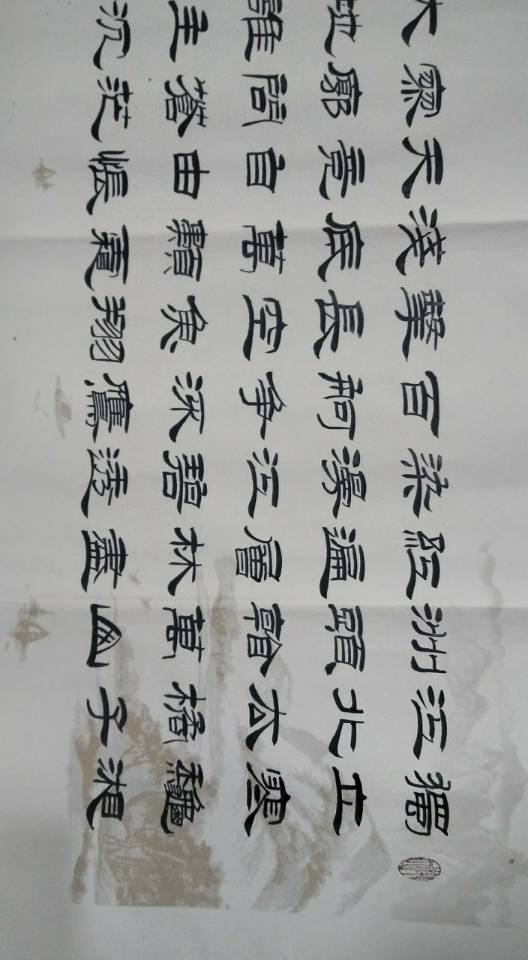 獨立寒龝湘
江北去橘子
洲頭看萬山
紅遍層林盡
染漫江碧透
百舸争流鷹
擊長空魚翔
淺底萬類霜
天竞自由悵
寥廓問蒼茫
大地誰主沉